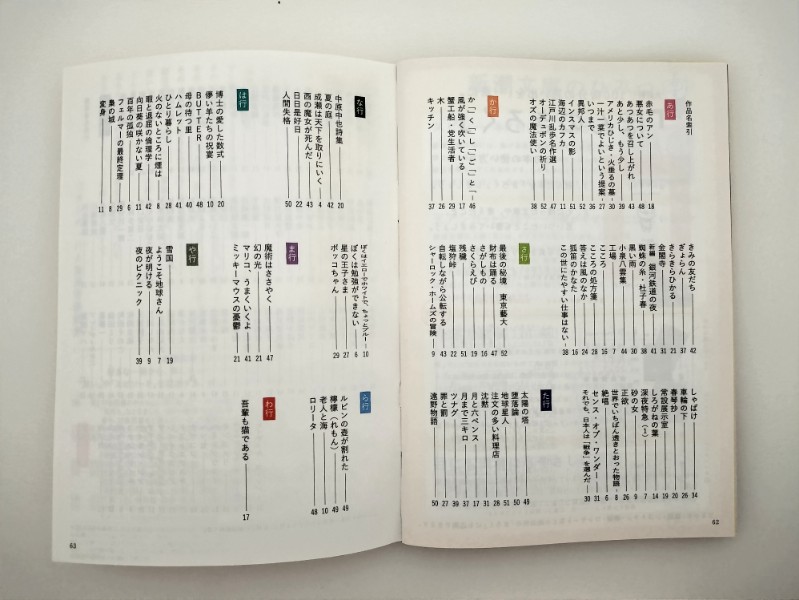 作品名索引
あ行
赤毛のアン 18
悪女について 48
あつあつを召し上がれ 43
あと少し、もう少し 39
アメリカひじき・火垂るの墓 30
一汁一菜でよいという提案 27
いつまで 36
異邦人 52
インスマスの影 51
海辺のカフカ 11
江戸川乱歩名作選 47
オーデュボンの祈り 52
オズの魔法使い 38
か行
か「」く「」し「」ご「」と「」 46
風が強く吹いている 17
蟹工船・党生活者 29
木 26
キッチン 37
きみの友だち 42
ぎょらん 37
きらきらひかる 21
金閣寺 31
新編 銀河鉄道の夜 41
蜘蛛の糸・杜子春 38
黒い雨 30
小泉八雲集 44
工場 7
こころ 14
こころの処方箋 28
答えは風のなか 24
狐笛のかなた 16
この世にたやすい仕事はない 38
さ行
最後の秘境 東京藝大 52
財布は踊る 47
さがしもの 16
さくらえび 19
残穢 51
塩狩峠 22
自転しながら公転する 43
シャーロック・ホームズの冒険 9
しゃばけ 34
車輪の下 26
春琴抄 20
常設展示室 19
しろがねの葉 14
深夜特急(1) 7
砂の女 9
正欲 26
世界でいちばん透きとおった物語 8
絶唱 6
センス・オブ・ワンダー 31
それでも、日本人は「戦争」を選んだ 30
た行
太陽の塔 49
堕落論 50
地球星人 51
注文の多い料理店 28
沈黙 31
月と六ペンス 17
月まで三キロ 37
ツナグ 39
罪と罰 27
遠野物語 50
62
な行
中原中也詩集 20
夏の庭 42
成瀬は天下を取りにいく 4
西の魔女が死んだ 43
日日是好日 22
人間失格 50
は行
博士の愛した数式 20
儚い羊たちの祝宴 49
BUTTER 10
母の待つ里 48
ハムレット 40
ひとり暮らし 41
火のないところに煙は 28
暇と退屈の倫理学 8
向日葵の咲かない夏 42
百年の孤独 11
フェルマーの最終定理 6
梟の城 29
変身 8
11
ぼくはイエローでホワイトで、ちょっとブルー 10
ぼくは勉強ができない 6
星の王子さま 27
ボッコちゃん 29
ま行
魔術はささやく 47
幻の光 21
マリコ、うまくいくよ 41
ミッキーマウスの憂鬱 21
や行
雪国 19
ようこそ地球さん 7
夜が明ける 9
夜のピクニック 39
ら行
ルビンの壺が割れた 49
檸檬(れもん) 49
老人と海 10
ロリータ 48
わ行
吾輩も猫である 17
63